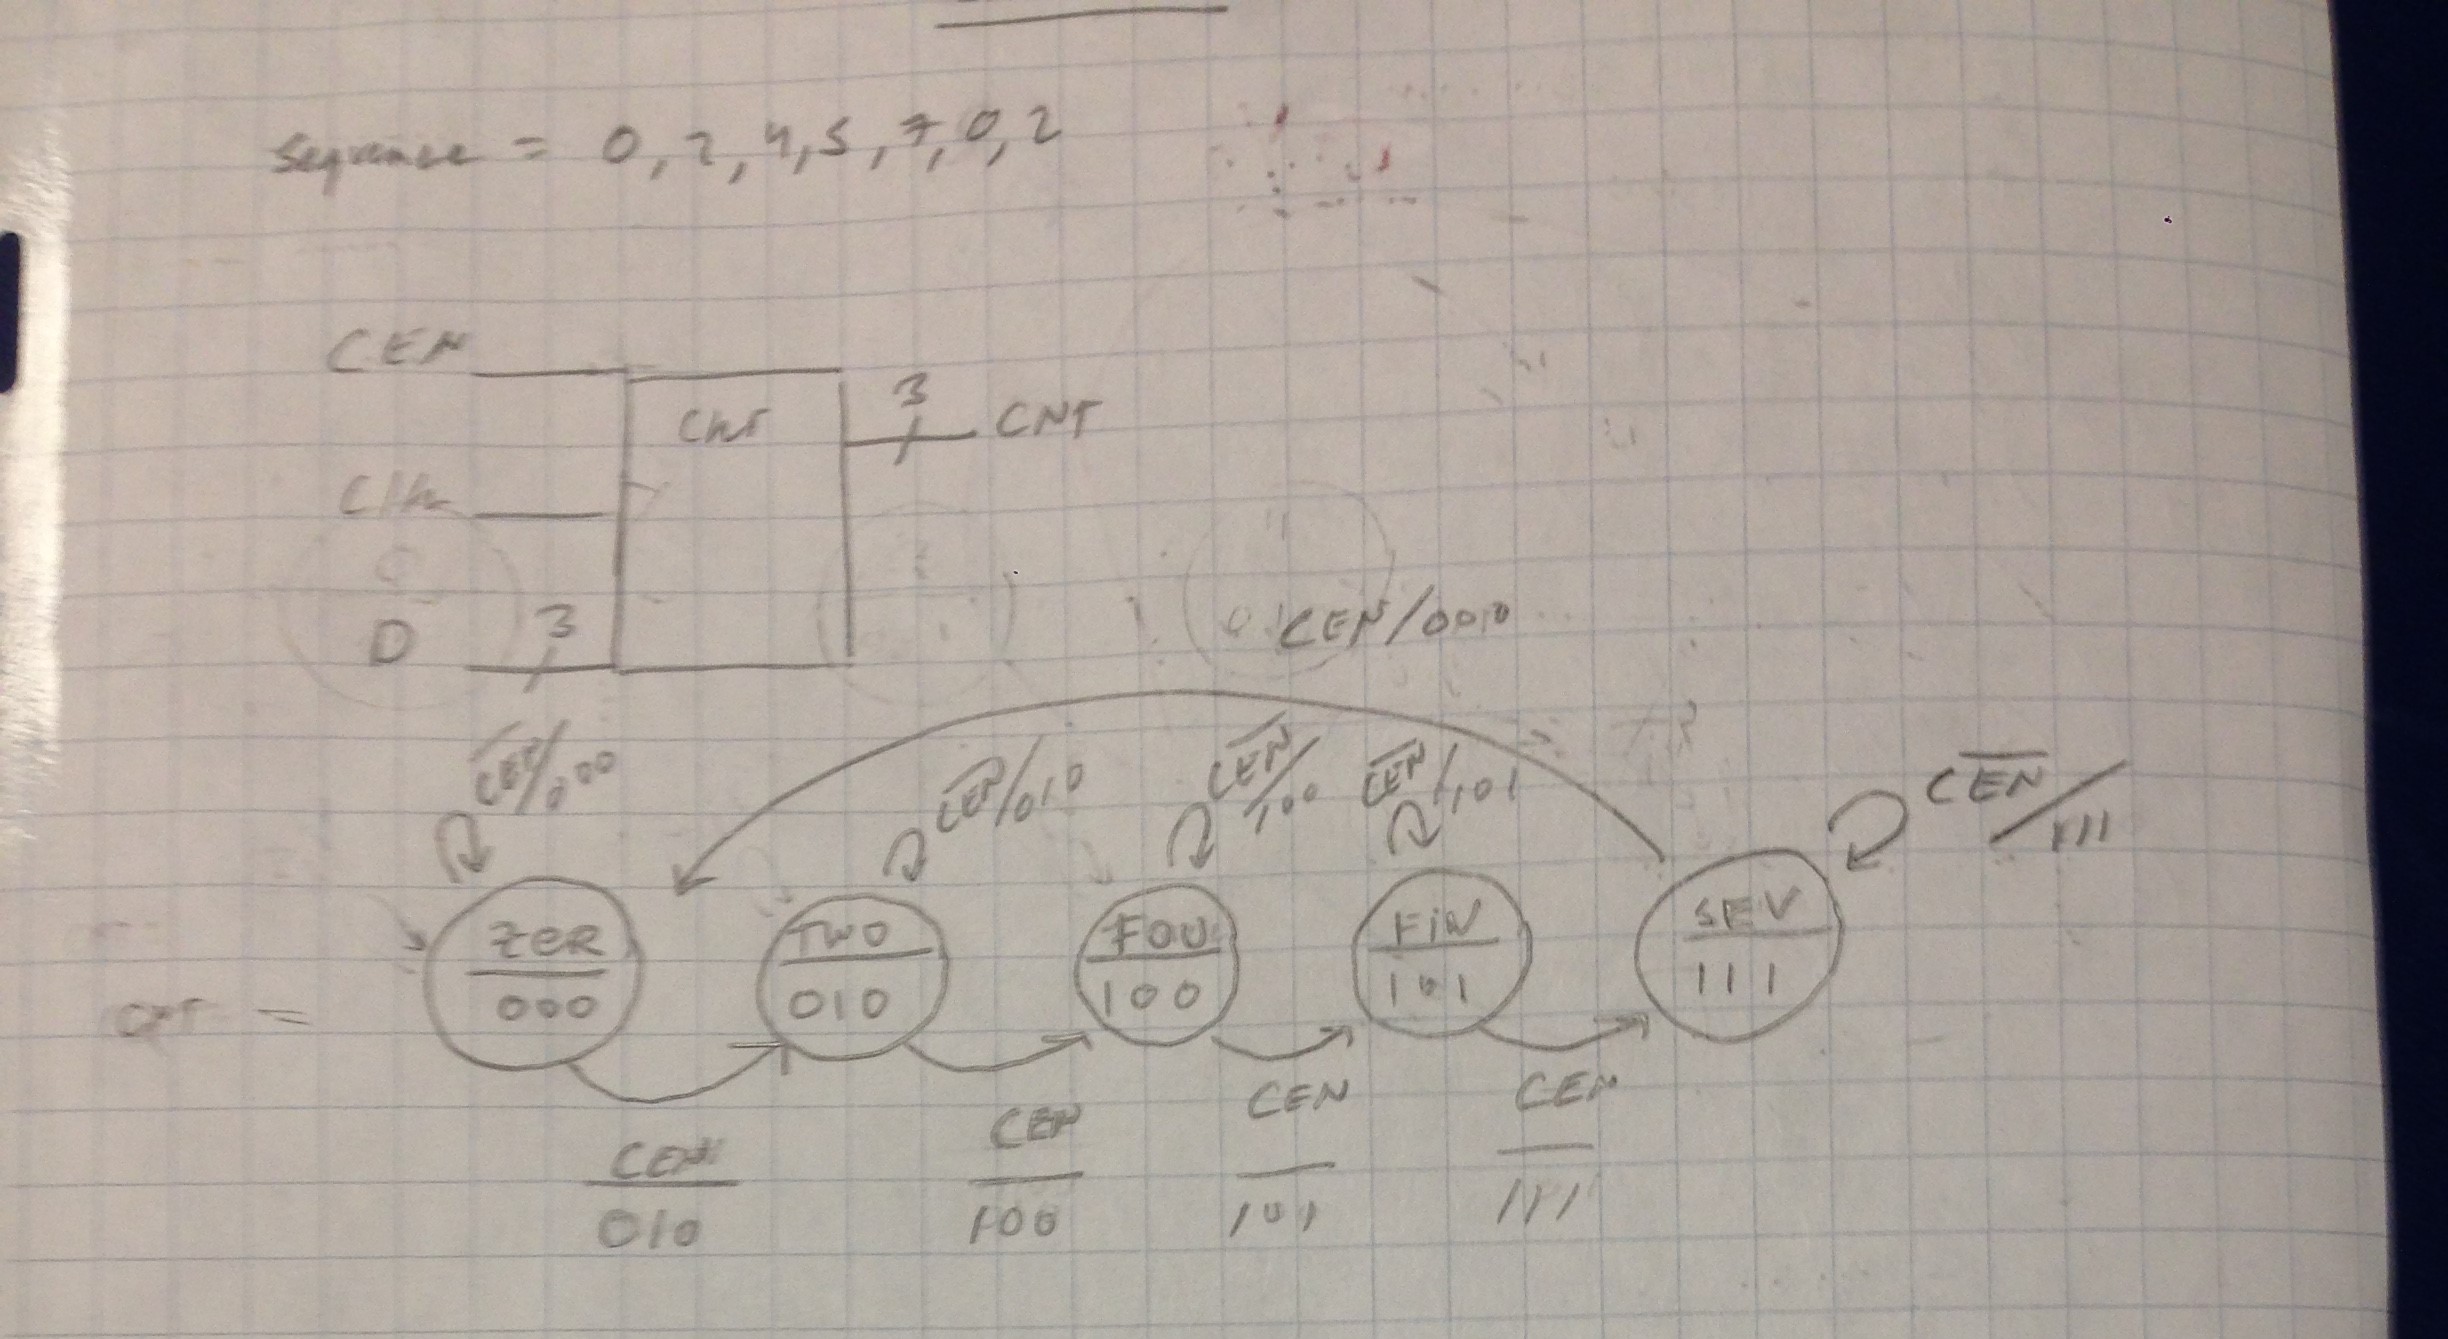 Sequence = 0, 2, 4, 5, 7, 0, 2
CEN
3
Cnt
CNT
Clk
3
D
CEN/000
C̅E̅N̅/000
C̅E̅N̅/010
C̅E̅N̅/100
C̅E̅N̅/101
C̅E̅N̅/111
ZER
000
TWO
010
FOU
100
FIV
101
SEV
111
CNT =
CEN
010
CEN
100
CEN
101
CEN
111